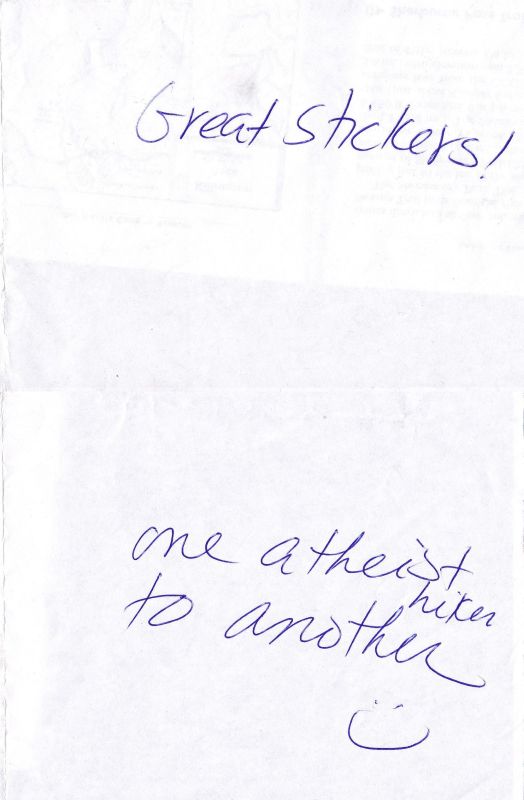 Great stickers!
one atheist
hiker
to another